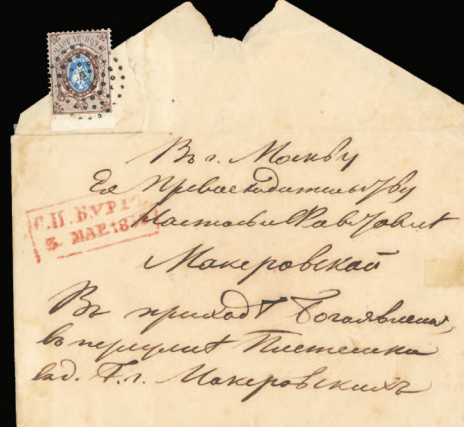 С.П.БУРГ
3 МАР.18
Въ г. Москву
Ея Превосходительству
Настасьи Павловнѣ
Макеровской
Въ приходѣ Богоявленія,
въ переулкѣ Плетешки
вд. Г. г. Макеровскихъ